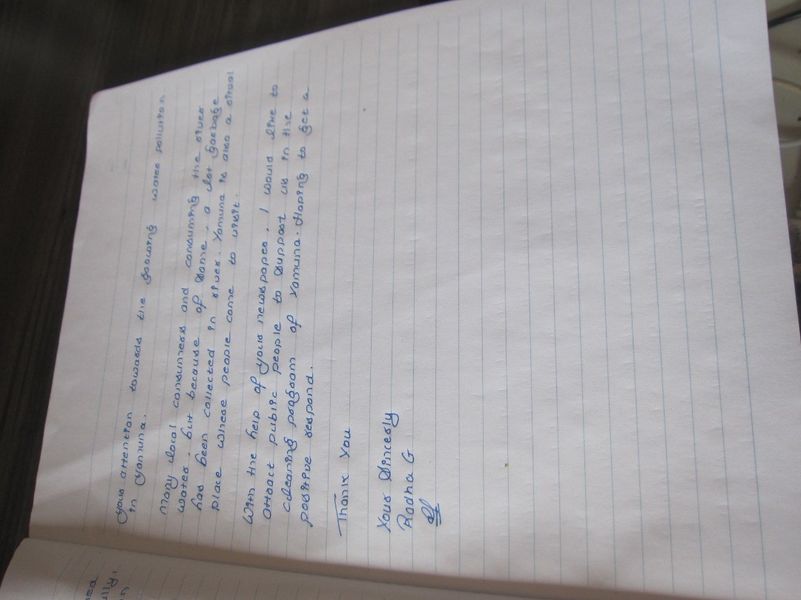 your attention towards the growing water pollution
in Yamuna.
many local consumers and consuming the river
water. but because of some, a lot garbage
has been collected in river. Yamuna is also a ritual
place where people come to visit.
With the help of your newspaper, I would like to
attract public people to support us in the
cleaning program of Yamuna. Hoping to get a
positive respond.
Thank You
Your Sincerly
Radha G